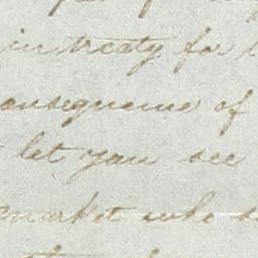 intreaty for
consequence of
let you see
market who